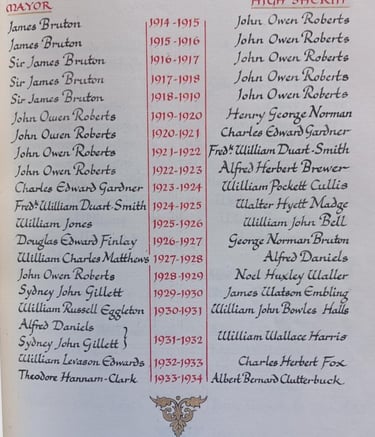 MAYOR HIGH SHERIFF
James Bruton 1914-1915 John Owen Roberts
James Bruton 1915-1916 John Owen Roberts
Sir James Bruton 1916-1917 John Owen Roberts
Sir James Bruton 1917-1918 John Owen Roberts
Sir James Bruton 1918-1919 John Owen Roberts
John Owen Roberts 1919-1920 Henry George Norman
John Owen Roberts 1920-1921 Charles Edward Gardner
John Owen Roberts 1921-1922 Fredk William Duart-Smith
John Owen Roberts 1922-1923 Alfred Herbert Brewer
Charles Edward Gardner 1923-1924 William Pockett Cullis
Fredk William Duart-Smith 1924-1925 Walter Hyett Madge
William Jones 1925-1926 William John Bell
Douglas Edward Finlay 1926-1927 George Norman Bruton
William Charles Matthews 1927-1928 Alfred Daniels
John Owen Roberts 1928-1929 Noel Huxley Waller
Sydney John Gillett 1929-1930 James Watson Embling
William Russell Eggleton 1930-1931 William John Bowles Halls
Alfred Daniels
Sydney John Gillett } 1931-1932 William Wallace Harris
William Levason Edwards 1932-1933 Charles Herbert Fox
Theodore Hannam-Clark 1933-1934 Albert Bernard Clutterbuck